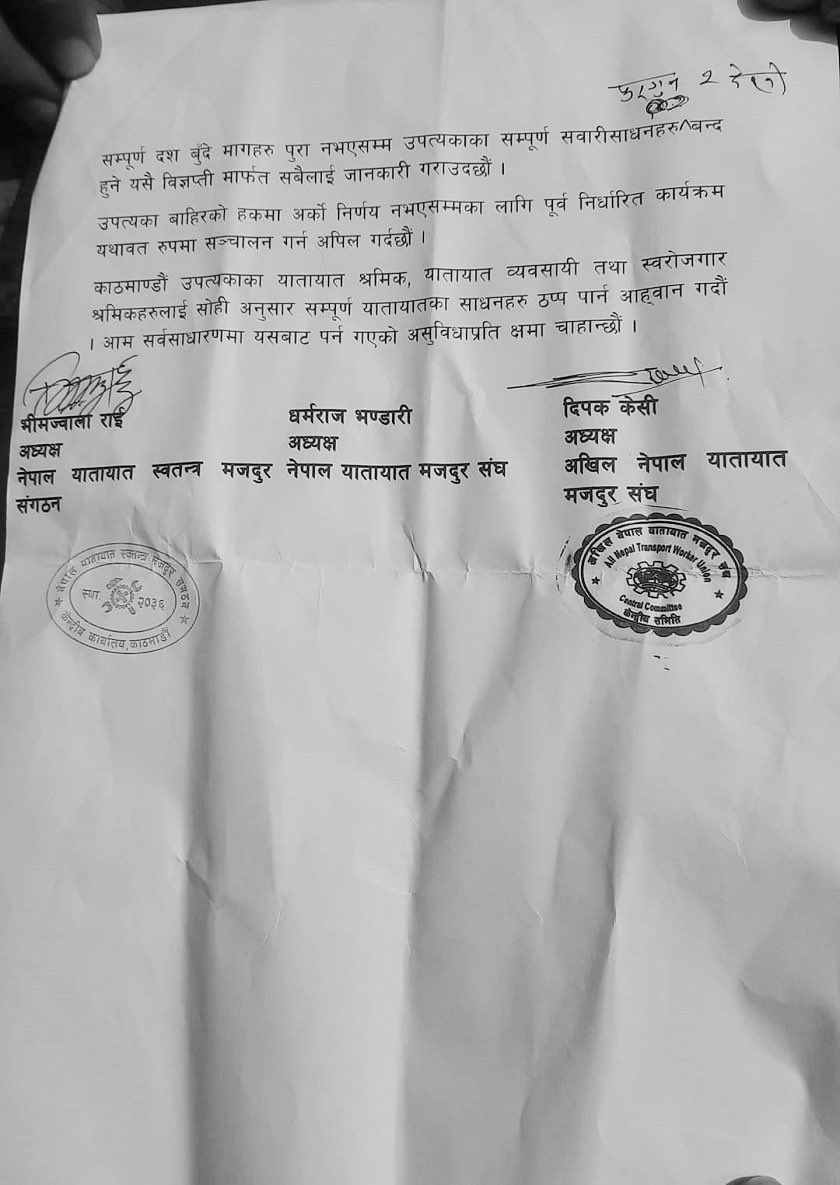 फागुन २ देखी
सम्पूर्ण दश बुँदे मागहरु पुरा नभएसम्म उपत्यकाका सम्पूर्ण सवारीसाधनहरु^बन्द
हुने यसै विज्ञप्ती मार्फत सबैलाई जानकारी गराउदछौं ।
उपत्यका बाहिरको हकमा अर्को निर्णय नभएसम्मका लागि पूर्व निर्धारित कार्यक्रम
यथावत रुपमा सञ्चालन गर्न अपिल गर्दछौं ।
काठमाण्डौं उपत्यकाका यातायात श्रमिक, यातायात व्यवसायी तथा स्वरोजगार
श्रमिकहरुलाई सोही अनुसार सम्पूर्ण यातायातका साधनहरु ठप्प पार्न आह्वान गर्दौं
। आम सर्वसाधारणमा यसबाट पर्न गएको असुविधाप्रति क्षमा चाहान्छौं ।
भीमज्वाला राई
अध्यक्ष
नेपाल यातायात स्वतन्त्र मजदुर
संगठन
धर्मराज भण्डारी
अध्यक्ष
नेपाल यातायात मजदुर संघ
दिपक केसी
अध्यक्ष
अखिल नेपाल यातायात
मजदुर संघ
नेपाल यातायात स्वतन्त्र मजदुर संगठन
स्था. २०३६
केन्द्रीय कार्यालय,काठमाडौं
अखिल नेपाल यातायात मजदुर संघ
All Nepal Transport Worker Union
Central Committee
केन्द्रीय समिति